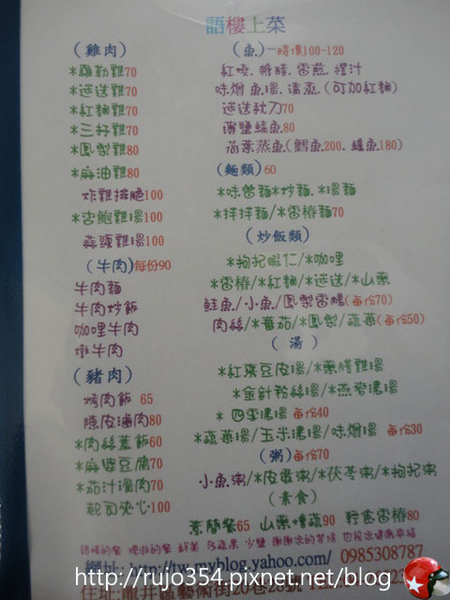 語樓上菜
(雞肉)
*羅勒雞70
*迷迭雞70
*紅麵雞70
*三杯雞70
*鳳梨雞80
*麻油雞80
炸雞排脆100
*杏鮑雞湯100
蒜頭雞湯100
(牛肉)每份90
牛肉麵
牛肉炒飯
咖哩牛肉
燉牛肉
(豬肉)
烤肉飯 65
陳皮滷肉80
*肉絲蓋飯60
*麻婆豆腐70
*茄汁燴肉70
起司夾心100
(魚)一時價100-120
紅燒.糖醋.香煎.搾汁
味噌魚湯.清蒸.(可加紅麵)
迷迭秋刀70
薄鹽鯖魚80
荷葉蒸魚(鱈魚200. 鱸魚180)
(麵類)60
*味噌麵*炒麵.*湯麵
*拌拌麵/*香椿麵70
(炒飯類)
*枸杞蝦仁/*咖哩
*香椿/*紅麵/*迷迭/*山藥
鮭魚/小魚/鳳梨香腸(每份70)
肉絲/*蕃茄/*鳳梨/蔬菜(每份50)
(湯)
*紅棗豆皮湯/*藥膳雞湯
*金針粉絲湯/*燕麥濃湯
*四季濃湯每份40
*蔬菜湯/玉米濃湯/味噌湯 每份30
(粥)每份70
小魚粥/*皮蛋粥/*茯苓粥/*枸杞粥
(素食)
素簡餐65 山藥燴蔬90 乾煎香椿80
網址:http://tw.myblog.yahoo.com/ 0985308787
http://rujo354.pixnet.net/blog
住址:龍井區藝術街20巷26號